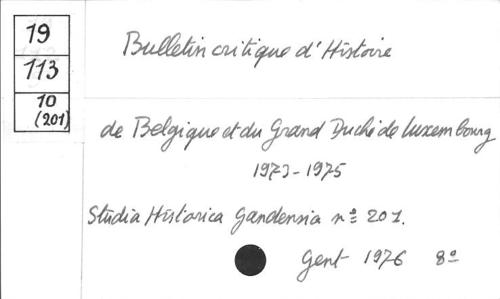 19
113
10
(201)
Bulletin critique d'Histoire
de Belgique et du Grand Duché de Luxembourg
1973-1975
Studia Historica Gandensia nº 201.
Gent 1976 8º